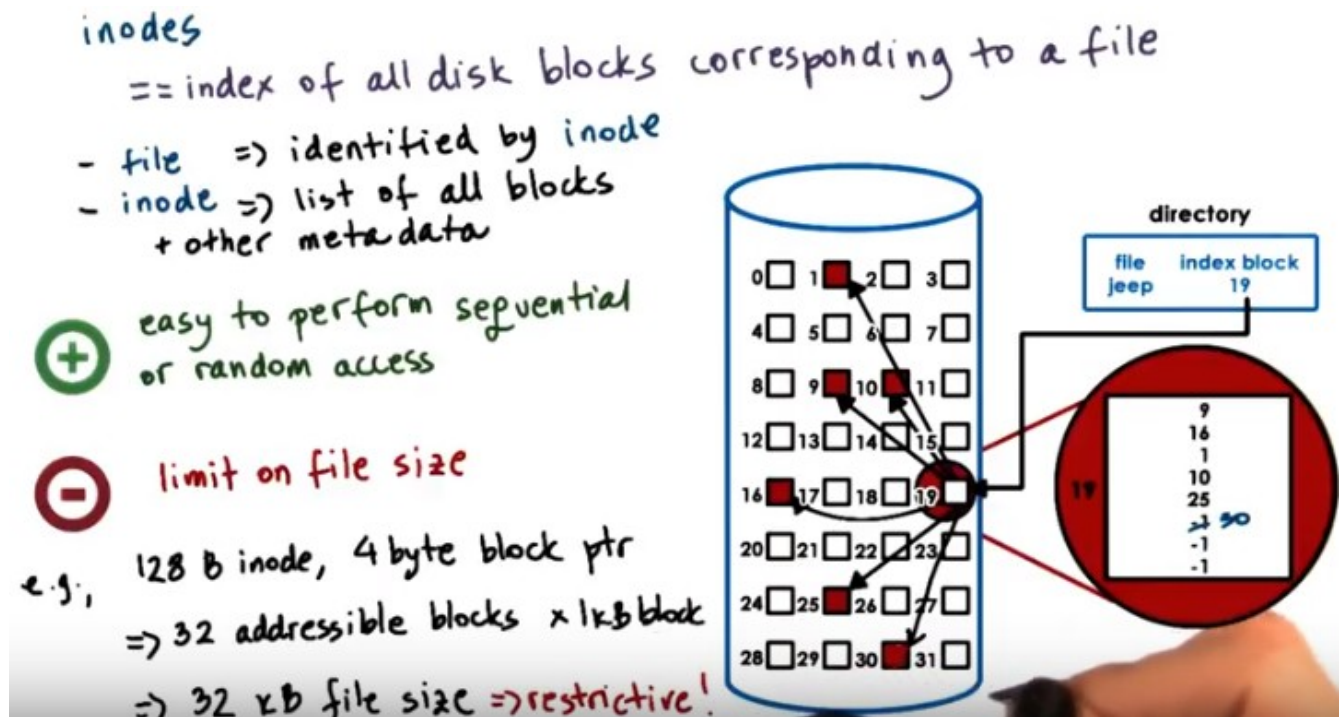 inodes
== index of all disk blocks corresponding to a file
- file => identified by inode
- inode => list of all blocks
+ other metadata
+ easy to perform sequential
or random access
- limit on file size
e.g., 128 B inode, 4 byte block ptr
=> 32 addressible blocks x 1kB block
=> 32 kB file size => restrictive!
directory
file index block
jeep 19
0 1 2 3
4 5 6 7
8 9 10 11
12 13 14 15
16 17 18 19
20 21 22 23
24 25 26 27
28 29 30 31
19
9
16
1
10
25
-1 30
-1
-1